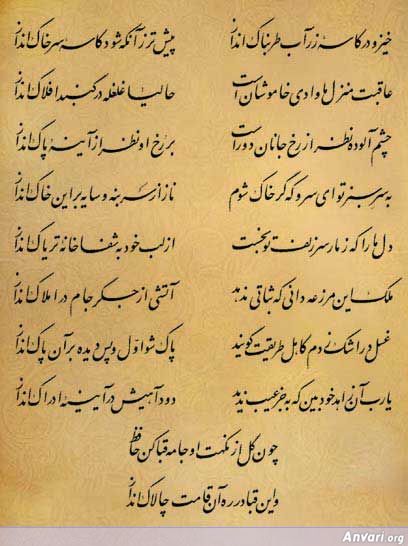 خیز و در کاسهٔ زر آب طربناک انداز پیش‌تر ز آنکه شود کاسهٔ سر خاک انداز
عاقبت منزل ما وادی خاموشان است حالیا غلغله در گنبد افلاک انداز
چشم آلوده نظر از رخ جانان دور است بر رخ او نظر از آینهٔ پاک انداز
به سر سبز تو ای سرو که گر خاک شوم ناز از سر بنه و سایه بر این خاک انداز
دل ما را که ز مار سر زلف تو بخست از لب خود به شفاخانهٔ تریاک انداز
ملک این مزرعه دانی که ثباتی ندهد آتشی از جگر جام در املاک انداز
غسل در اشک زدم کاهل طریقت گویند پاک شو اوّل و پس دیده بر آن پاک انداز
یارب آن زاهد خودبین که به جز عیب ندید دود آهیش در آیینهٔ ادراک انداز
چون گل از نکهت او جامه قبا کن حافظ
وین قبا در ره آن قامت چالاک انداز
Anvari.org